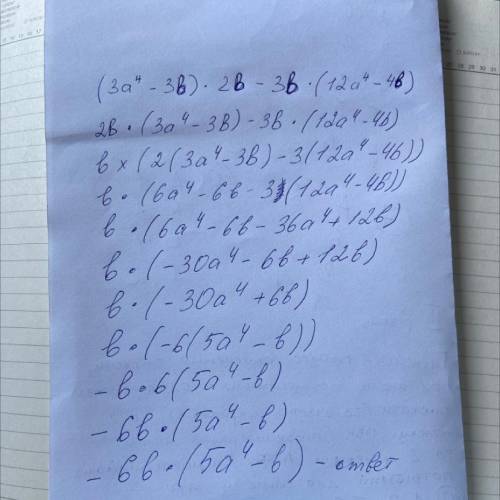 (3a⁴ - 3b) · 2b - 3b · (12a⁴ - 4b)
2b · (3a⁴ - 3b) - 3b · (12a⁴ - 4b)
b × (2(3a⁴ - 3b) - 3(12a⁴ - 4b))
b · (6a⁴ - 6b - 3(12a⁴ - 4b))
b · (6a⁴ - 6b - 36a⁴ + 12b)
b · (-30a⁴ - 6b + 12b)
b · (-30a⁴ + 6b)
b · (-6(5a⁴ - b))
-b · 6(5a⁴ - b)
-6b · (5a⁴ - b)
-6b · (5a⁴ - b) - ответ